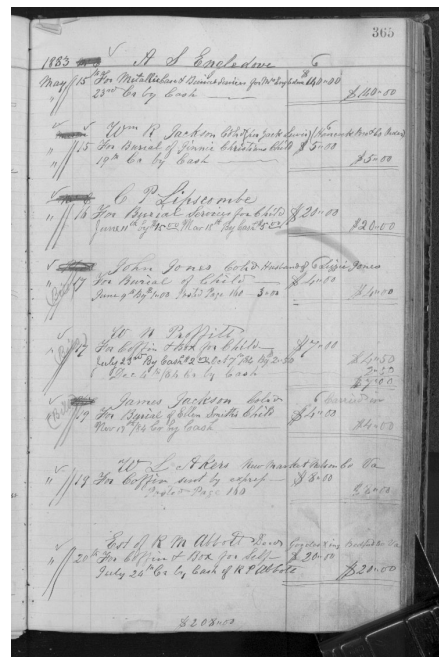 365
1883 A S Engledove
May 15th For Metallic Case & Burial Services for Mrs Engledove $140=00
23rd Cr by Cash $140=00
Wm R Jackson Cold
" 15 For Burial of Jinnie Christians Child $5=00
19th Cr by Cash $5=00
C P Lipscombe
" 16 For Burial Services for Child $20=00
June 11th by $15=00 Mar 18th By Cash $5=00 $20=00
John Jones Cold Husband of Lizzie Jones
" 17 For Burial of Child $4=00
June 9th By $1=00 Page 160 3=00 $4=00
W N Proffitt
" 17 For Coffin & Box for Child $7=00
July 23rd By Cash $2 Oct 7th 84 By 2=50 $4=50
Dec 4th /84 Cr by Cash
$7=00
James Jackson Cold
" 19 For Burial of Ellen Smiths Child $4=00
Nov 13th /84 Cr by Cash $4=00
W L Akers New Market Nelson Co Va
" 19 For Coffin sent by express $8=00
Page 160 $8=00
Est of R M Abbott
" 20th For Coffin & Box for Self $20=00
July 24th Cr by Cash of R P Abbott $20=00
$208=00